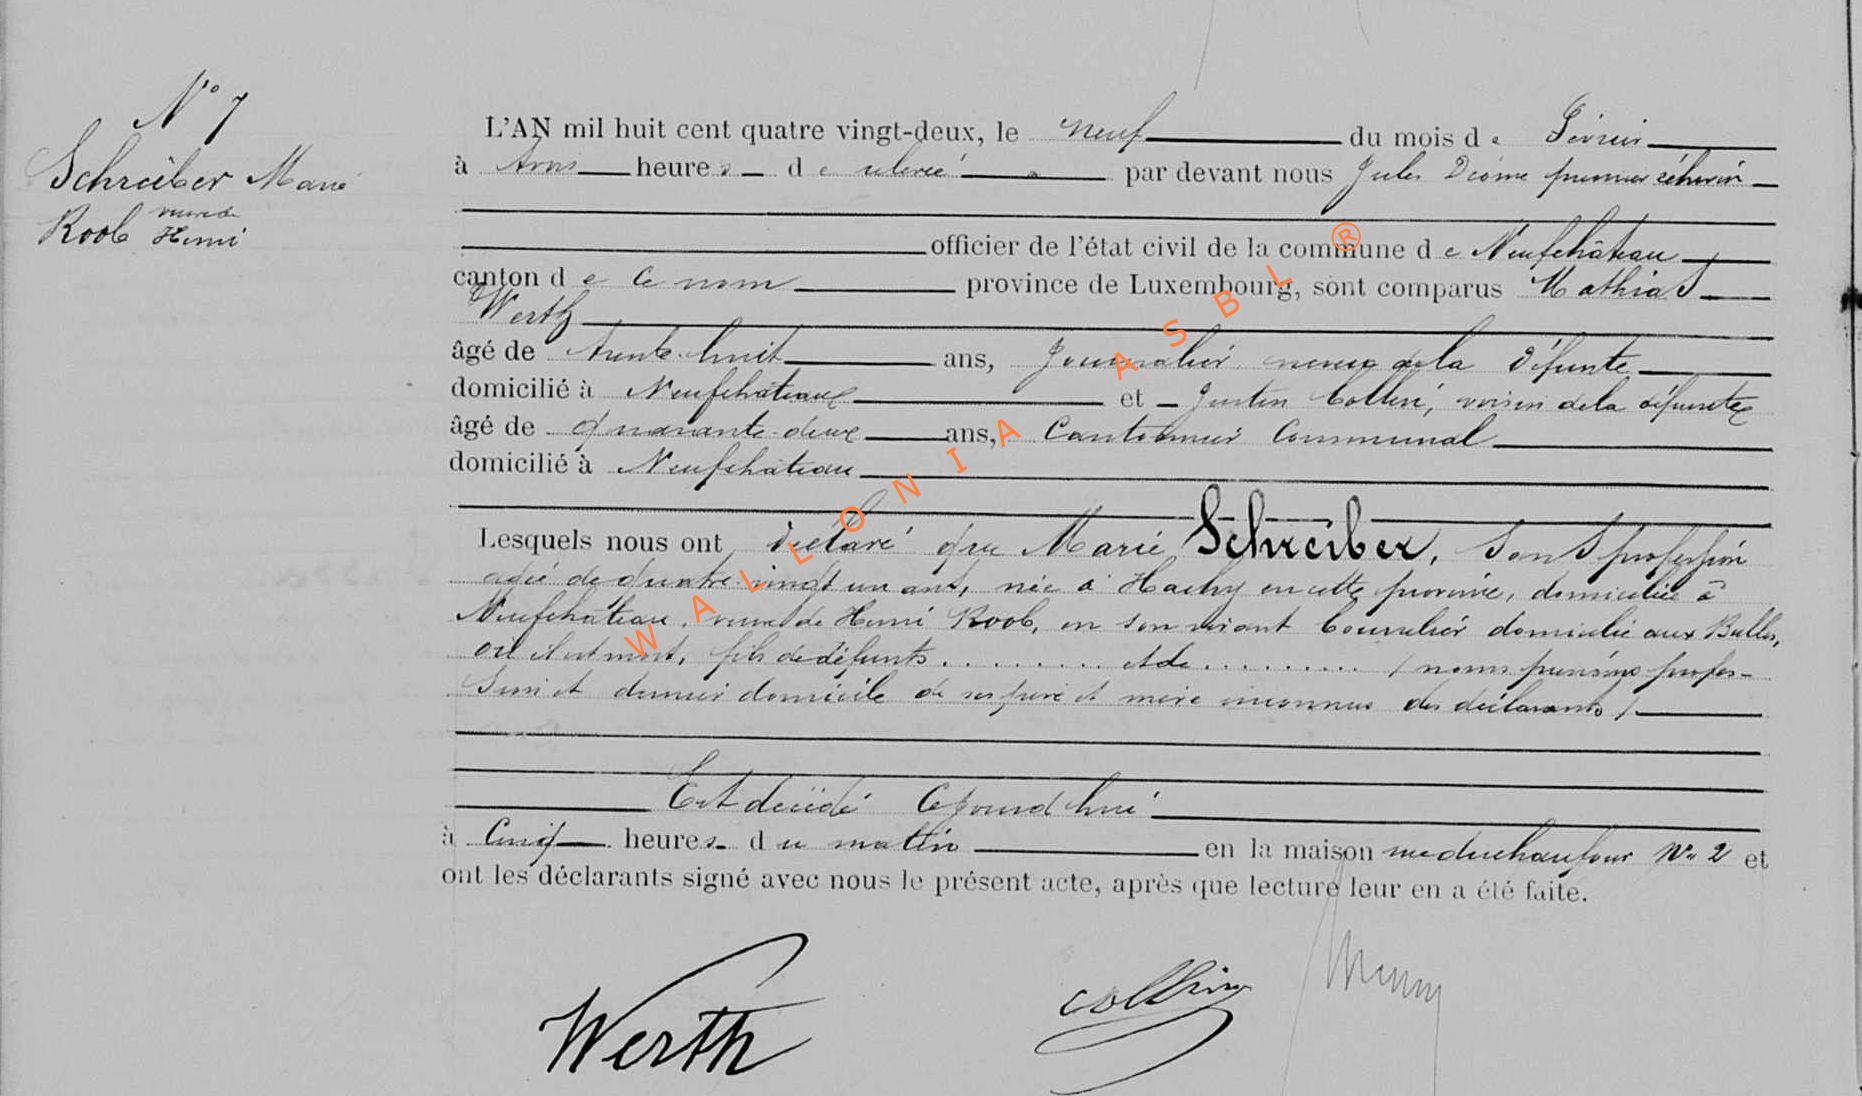 N° 7
Schreiber Marie
veuve de
Roob Henri
L'AN mil huit cent quatre vingt-deux, le neuf du mois de Février
à trois heures de relevée par devant nous Jules premier échevin
officier de l'état civil de la commune de Neufchâteau
canton de ce nom province de Luxembourg, sont comparus Mathias
Werth
âgé de trente-huit ans, Journalier neveu de la défunte
domicilié à Neufchâteau et Justin Collin, voisin de la défunte
âgé de quarante-deux ans, Cantonnier Communal
domicilié à Neufchâteau
Lesquels nous ont déclaré que Marie Schreiber, sans profession
agée de quatre-vingt un ans, née à Hachy en cette province, domiciliée à
Neufchâteau, veuve de Henri Roob, en son vivant domicilié aux Bulles,
où il est mort, fils de défunts ......... et de .......... (noms prénoms profes-
sion et dernier domicile de ses père et mère inconnus des déclarants)
Est décédé Cejourd'hui
à Cinq heures du matin en la maison rue du chaufour N° 2 et
ont les déclarants signé avec nous le présent acte, après que lecture leur en a été faite.
Werth
Collin
WALLONIA ASBL ®